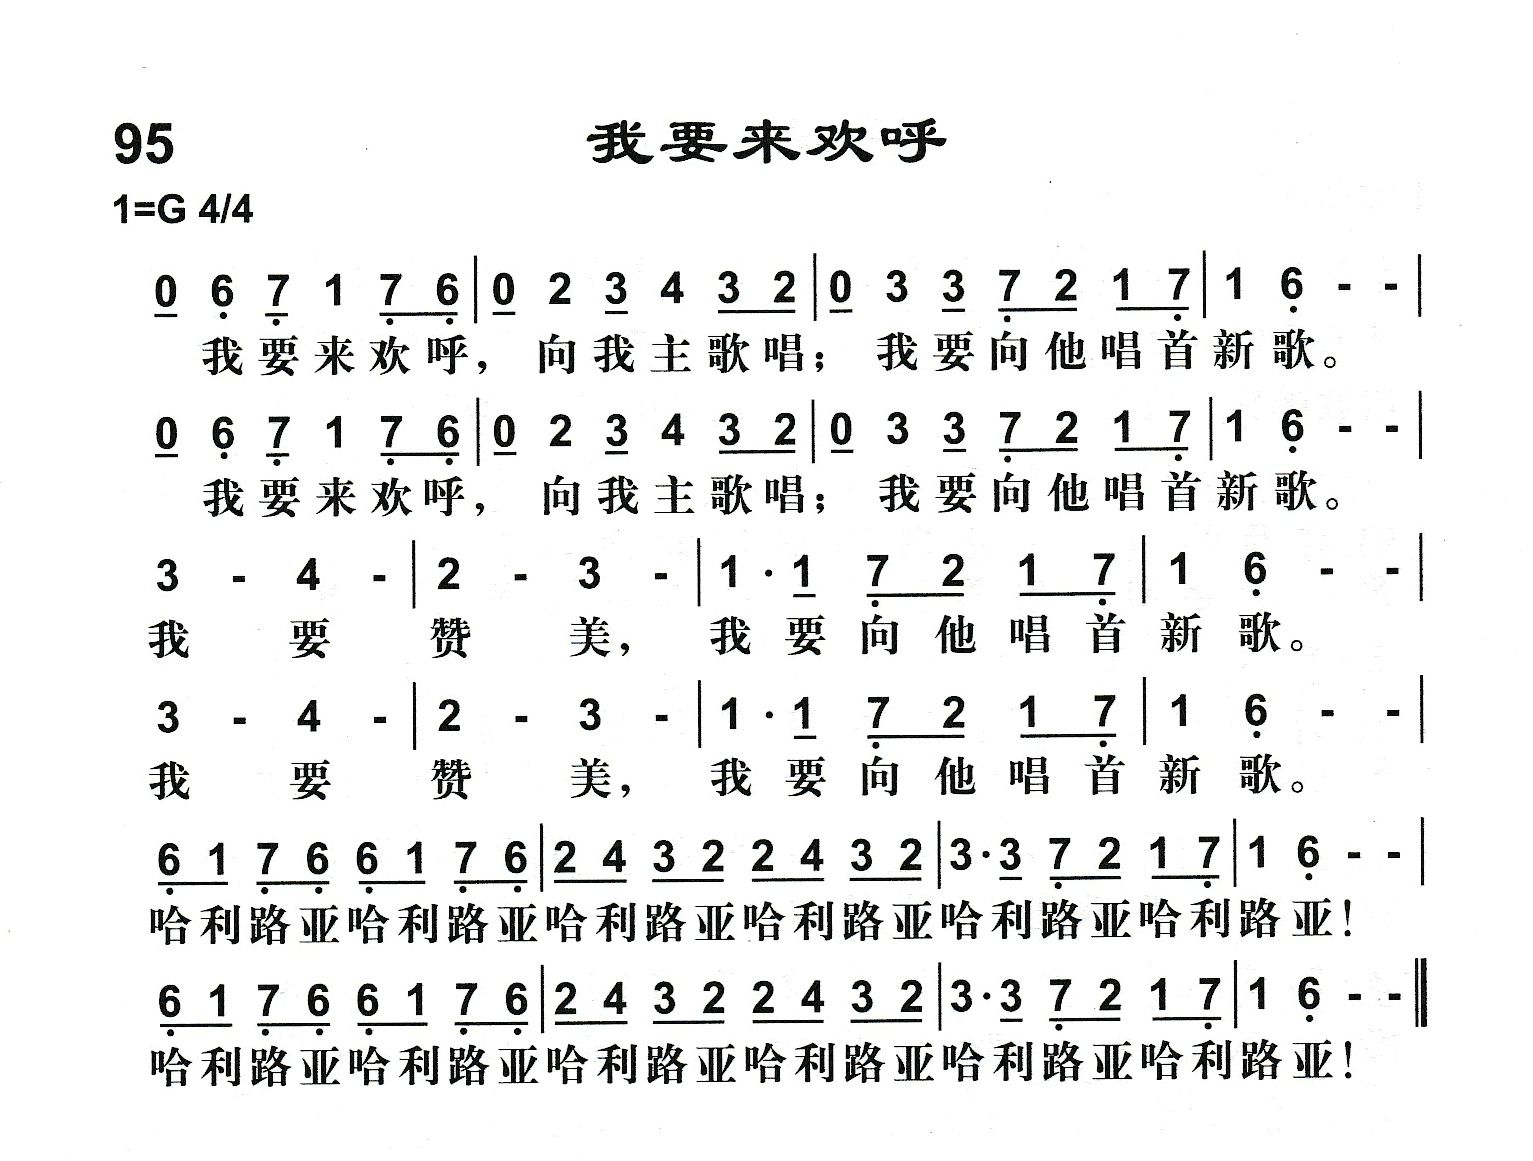 95 我要来欢呼
1=G 4/4
0 6 7 1 7 6 | 0 2 3 4 3 2 | 0 3 3 7 2 1 7 | 1 6 - - |
我要来欢呼，向我主歌唱；我要向他唱首新歌。
0 6 7 1 7 6 | 0 2 3 4 3 2 | 0 3 3 7 2 1 7 | 1 6 - - |
我要来欢呼，向我主歌唱；我要向他唱首新歌。
3 - 4 - | 2 - 3 - | 1 · 1 7 2 1 7 | 1 6 - - |
我要赞美，我要向他唱首新歌。
3 - 4 - | 2 - 3 - | 1 · 1 7 2 1 7 | 1 6 - - |
我要赞美，我要向他唱首新歌。
6 1 7 6 6 1 7 6 | 2 4 3 2 2 4 3 2 | 3 · 3 7 2 1 7 | 1 6 - - |
哈利路亚哈利路亚哈利路亚哈利路亚哈利路亚哈利路亚！
6 1 7 6 6 1 7 6 | 2 4 3 2 2 4 3 2 | 3 · 3 7 2 1 7 | 1 6 - - ‖
哈利路亚哈利路亚哈利路亚哈利路亚哈利路亚哈利路亚！